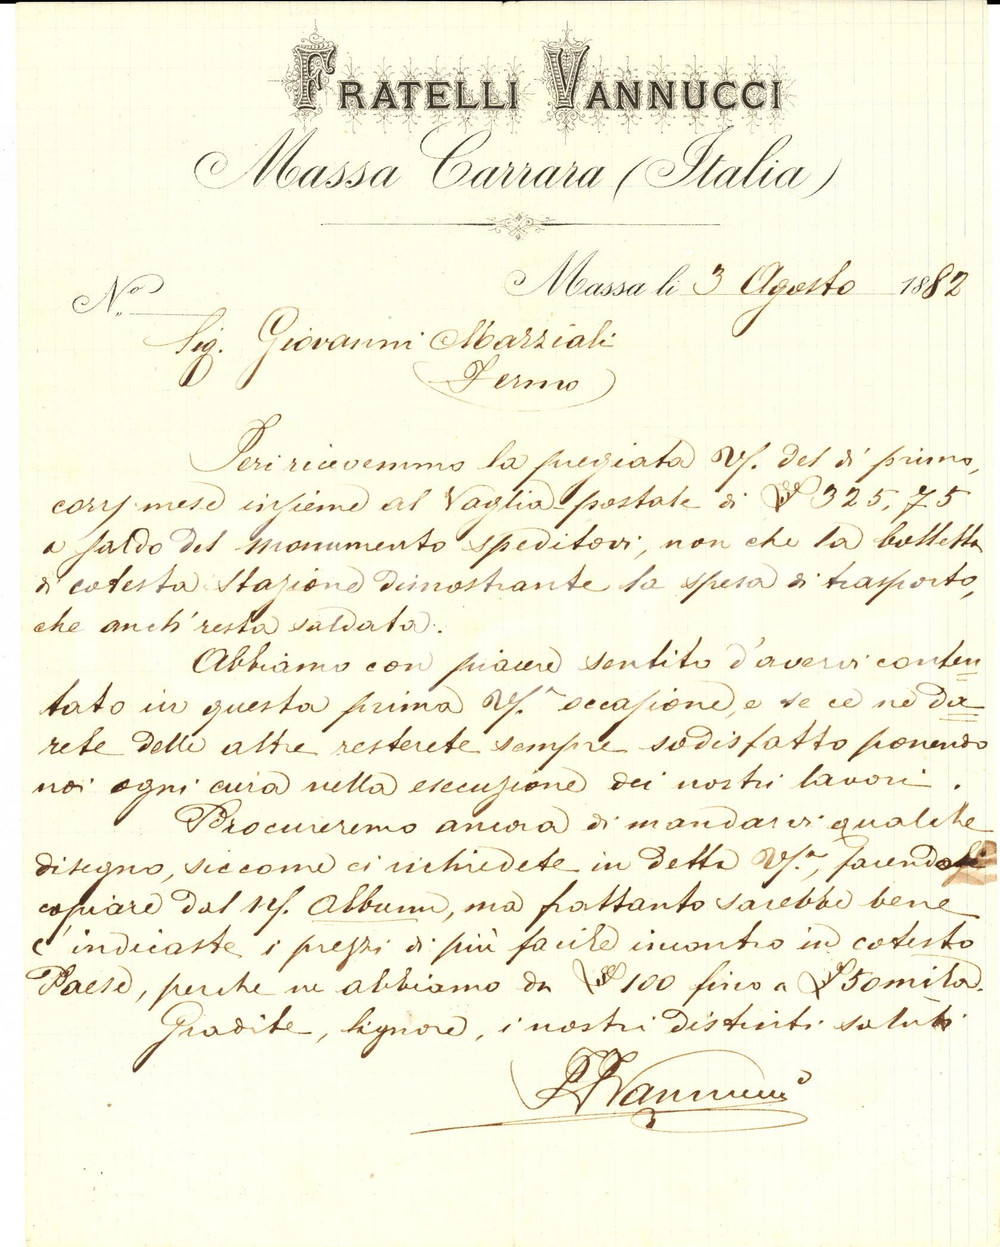 FRATELLI VANNUCCI
Massa Carrara (Italia)
Massa li 3 Agosto 1882
N.º
Sig. Giovanni Marziali
Fermo
Jeri ricevemmo la pregiata V/. del dì primo,
corr. mese insieme al Vaglia postale di £ 325,75
a saldo del monumento speditovi, non che la bolletta
di cotesta stazione dimostrante la spesa di trasporto,
che anch'resta saldata.
Abbiamo con piacere sentito d'avervi conten=
tato in questa prima V/.ª occasione, e se ce ne da=
rete delle altre resterete sempre sodisfatto ponendo
noi ogni cura nella esecuzione dei nostri lavori.
Procureremo ancora di mandarvi qualche
disegno, siccome ci richiedete in detta V/.ª, facendoli
copiare dal N/. Album, ma frattanto sarebbe bene
c'indicaste i prezzi di più facile incontro in cotesto
Paese, perche ne abbiamo da £ 100 fino a £ 50 mila.
Gradite, Signore, i nostri distinti saluti
F. Vannucci